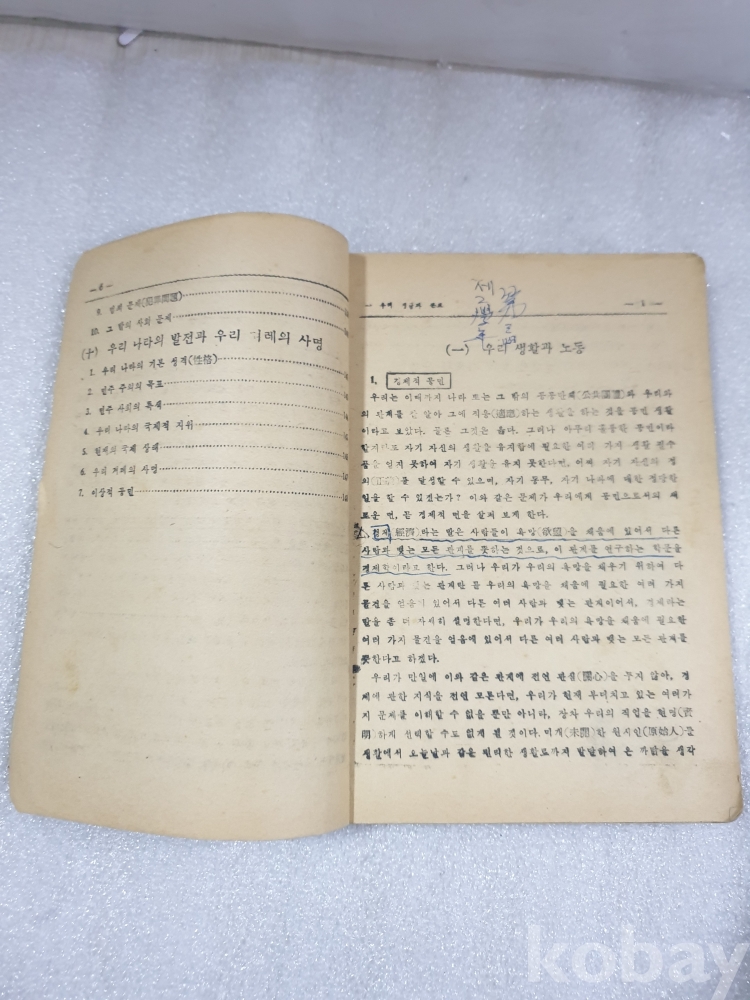 — 6 —
9. 범죄 문제(犯罪問題)
10. 그 밖의 사회 문제
(十) 우리 나라의 발전과 우리 겨레의 사명
1. 우리 나라의 기본 성격(性格)
2. 민주 주의의 목표
3. 민주 사회의 특색
4. 우리 나라의 국제적 지위
5. 현재의 국제 상태
6. 우리 겨레의 사명
7. 이상적 공민
— 1 —
(一) 우리 생활과 노동
1. 경제적 공민
우리는 이때까지 나라 또는 그 밖의 공공단체(公共團體)와 우리와
의 관계를 잘 알아 그에 적응(適應)하는 생활을 하는 것을 공민 생활
이라고 보았다. 물론 그것은 옳다. 그러나 아무리 훌륭한 공민이라
할지라도 자기 자신의 생활을 유지함에 필요한 여러 가지 생활 필수
품을 얻지 못하여 자기 생활을 유지 못한다면, 어찌 자기 자신의 정
의(正義)를 달성할 수 있으며, 자기 동무, 자기 나라에 대한 정당한
일을 할 수 있겠는가? 이와 같은 문제가 우리에게 공민으로서의 새
로운 면, 곧 경제적 면을 살펴 보게 한다.
경제(經濟)라는 말은 사람들이 욕망(欲望)을 채움에 있어서 다른
사람과 맺는 모든 관계를 뜻하는 것으로, 이 관계를 연구하는 학문을
경제학이라고 한다. 그러나 우리가 우리의 욕망을 채우기 위하여 다
른 사람과 맺는 관계란 곧 우리의 욕망을 채움에 필요한 여러 가지
물건을 얻음에 있어서 다른 여러 사람과 맺는 관계이어서, 경제라는
말을 좀 더 자세히 설명한다면, 우리가 우리의 욕망을 채움에 필요한
여러 가지 물건을 얻음에 있어서 다른 여러 사람과 맺는 모든 관계를
뜻한다고 하겠다.
우리가 만일에 이와 같은 관계에 전연 관심(關心)을 두지 않아, 경
제에 관한 지식을 전연 모른다면, 우리가 현재 부디치고 있는 여러가
지 문제를 이해할 수 없을 뿐만 아니라, 장차 우리의 직업을 현명(賢
明)하게 선택할 수도 없게 될 것이다. 미개(未開)한 원시인(原始人)들
생활에서 오늘날과 같은 편리한 생활로까지 발달하여 온 까닭을 생각
kobay